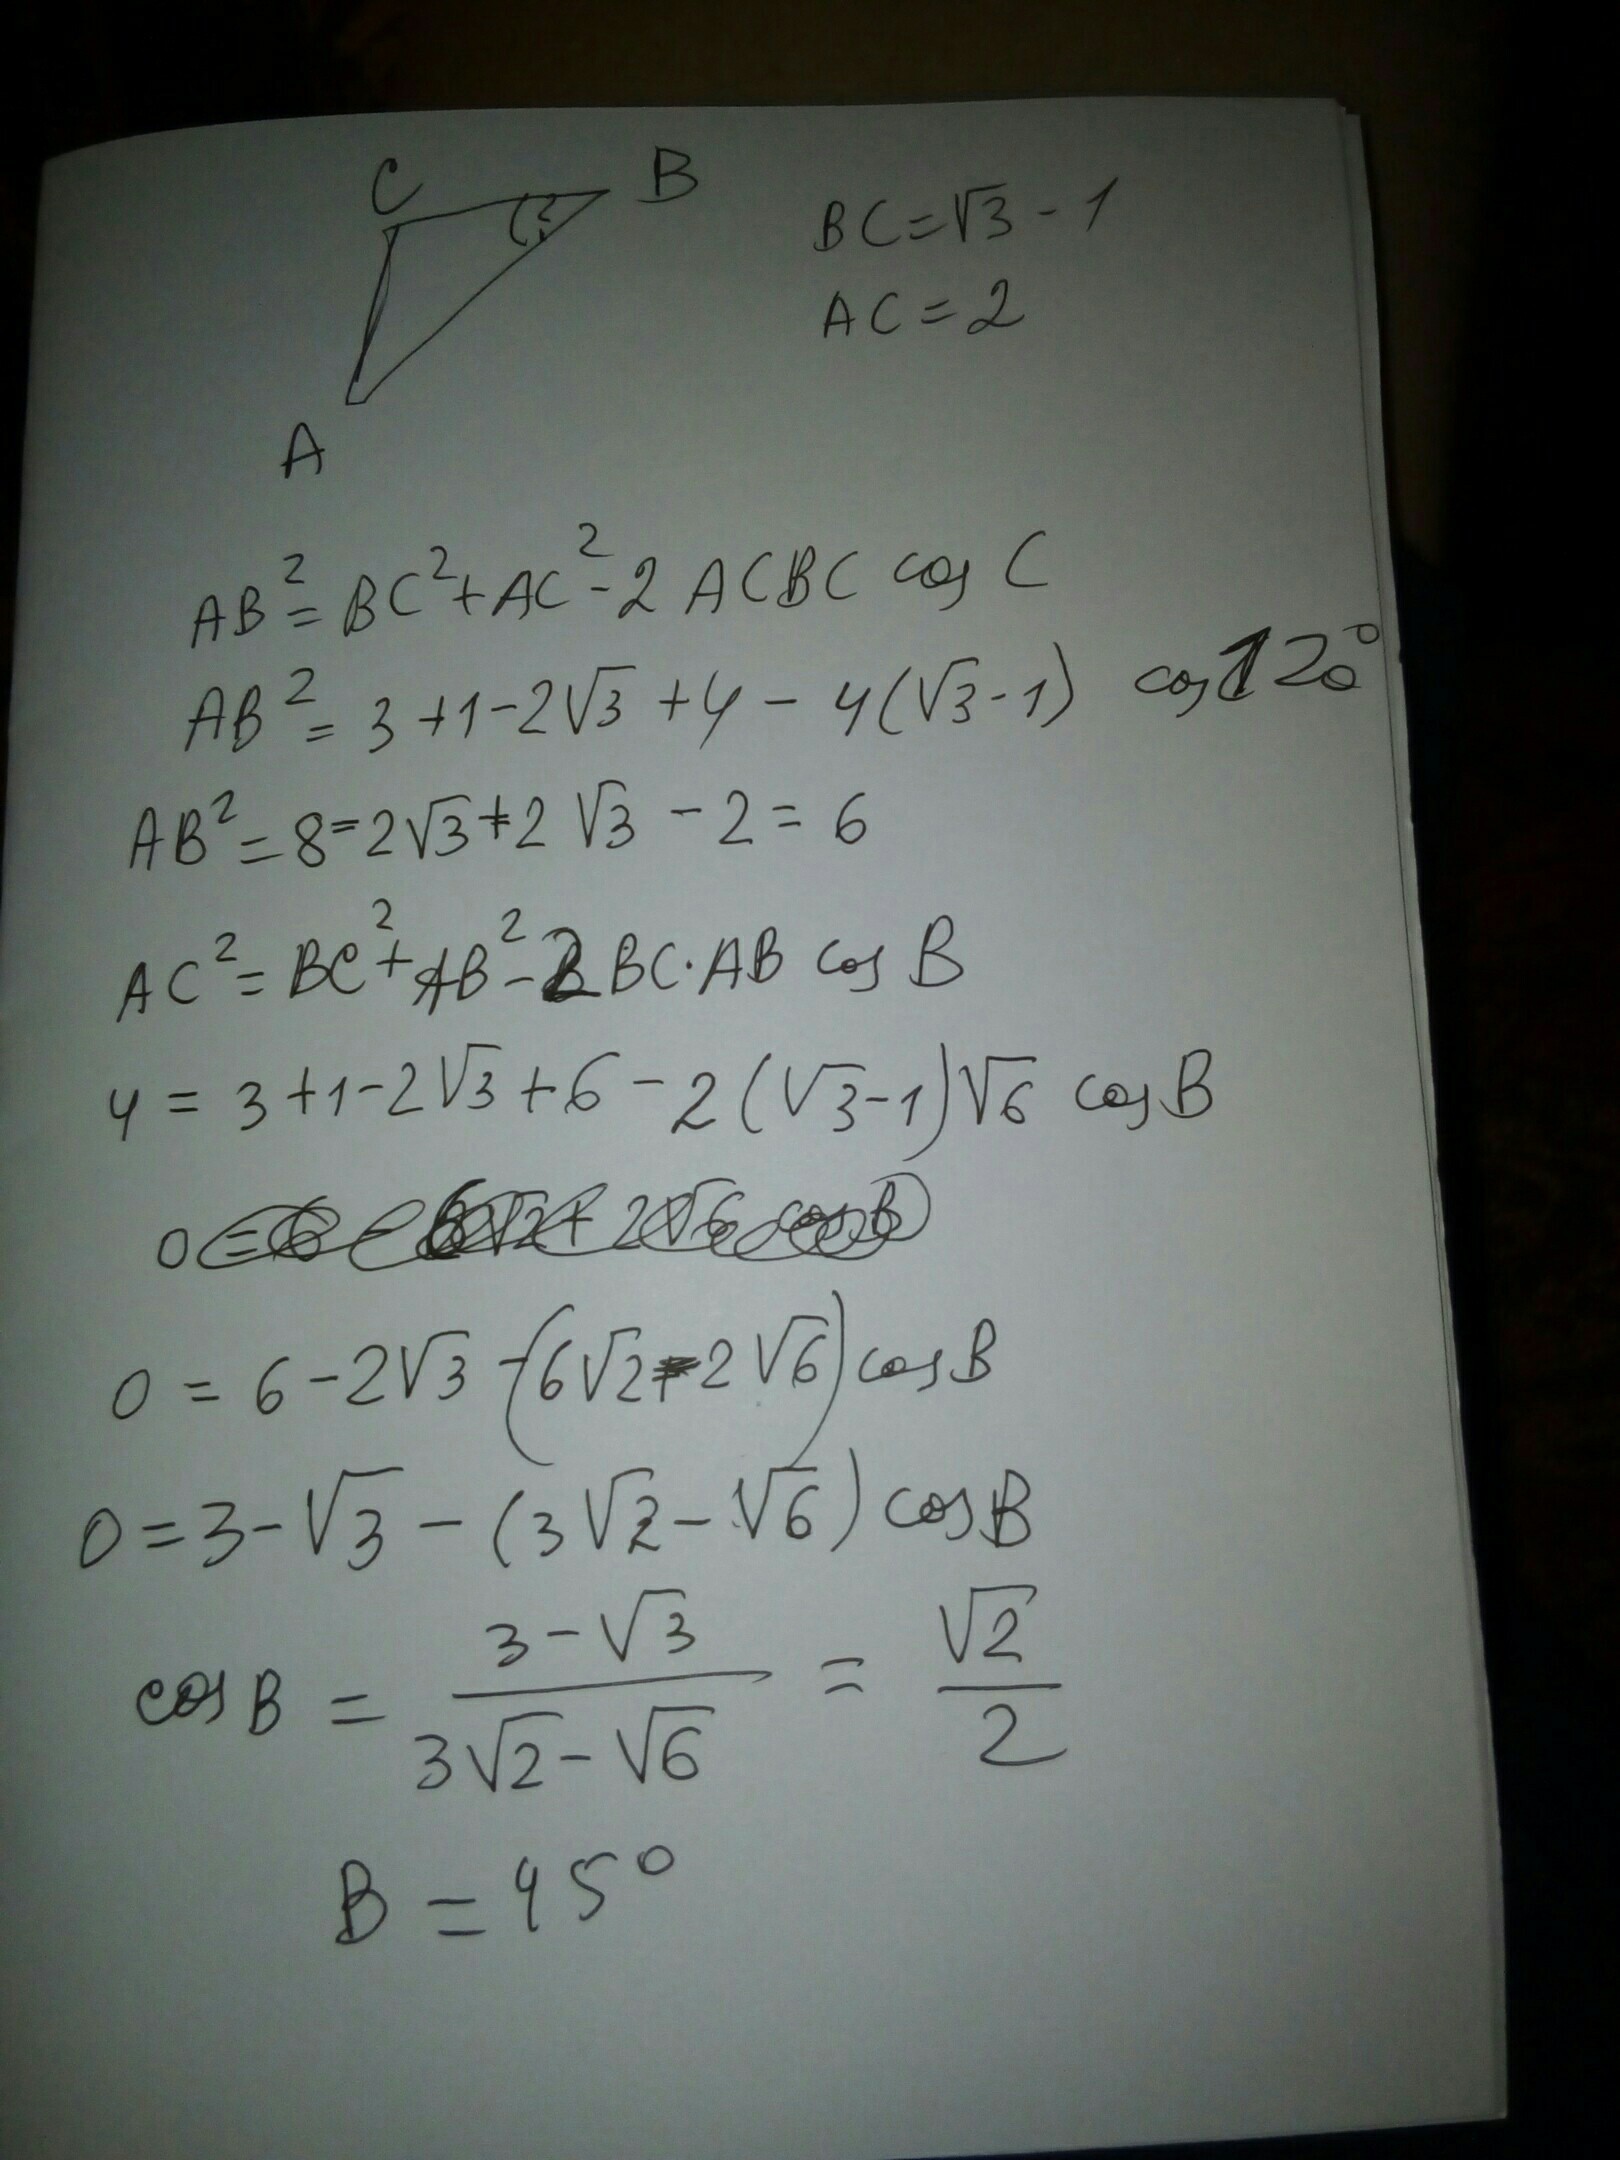 C B
BC=√3-1
AC=2
A
AB²=BC²+AC²-2ACBC cos C
AB²=3+1-2√3+4-4(√3-1) cos120°
AB²=8-2√3+2√3-2=6
AC²=BC²+AB²-2BC·AB cos B
4=3+1-2√3+6-2(√3-1)√6 cosB
0=6-2√3-(6√2-2√6)cosB
0=3-√3-(3√2-√6)cosB
cosB=(3-√3)/(3√2-√6)=√2/2
B=45°